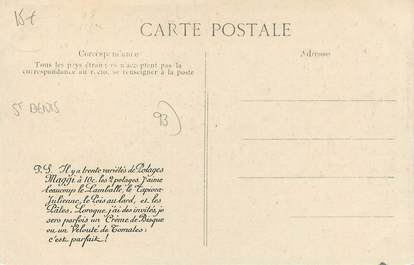 15€
CARTE POSTALE
Correspondance
Tous les pays étrangers n'acceptent pas la
correspondance au recto, se renseigner à la poste
Adresse
ST DENIS
93)
P.S. Il y a trente variétés de Potages
Maggi à 10c. les 2 potages. J'aime
beaucoup le Lamballe, le Tapioca-
Julienne, le Pois au lard, et les
Pâtes. Lorsque j'ai des invités, je
sers parfois un Crème de Bisque
ou un Velouté de Tomates:
c'est parfait!